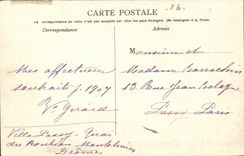 26
CARTE POSTALE
La correspondance au recto n'est pas acceptée par tous les pays étrangers (Se renseigner à la Poste)
Correspondance
Adresse
Monsieur et
Mes affectueux
Madame
souhaits p. 1907
13 Rue Jean Bologne
Y. Guiard
Passy Paris
Villa Passy Quai
du Roubion Montélimar
Drôme